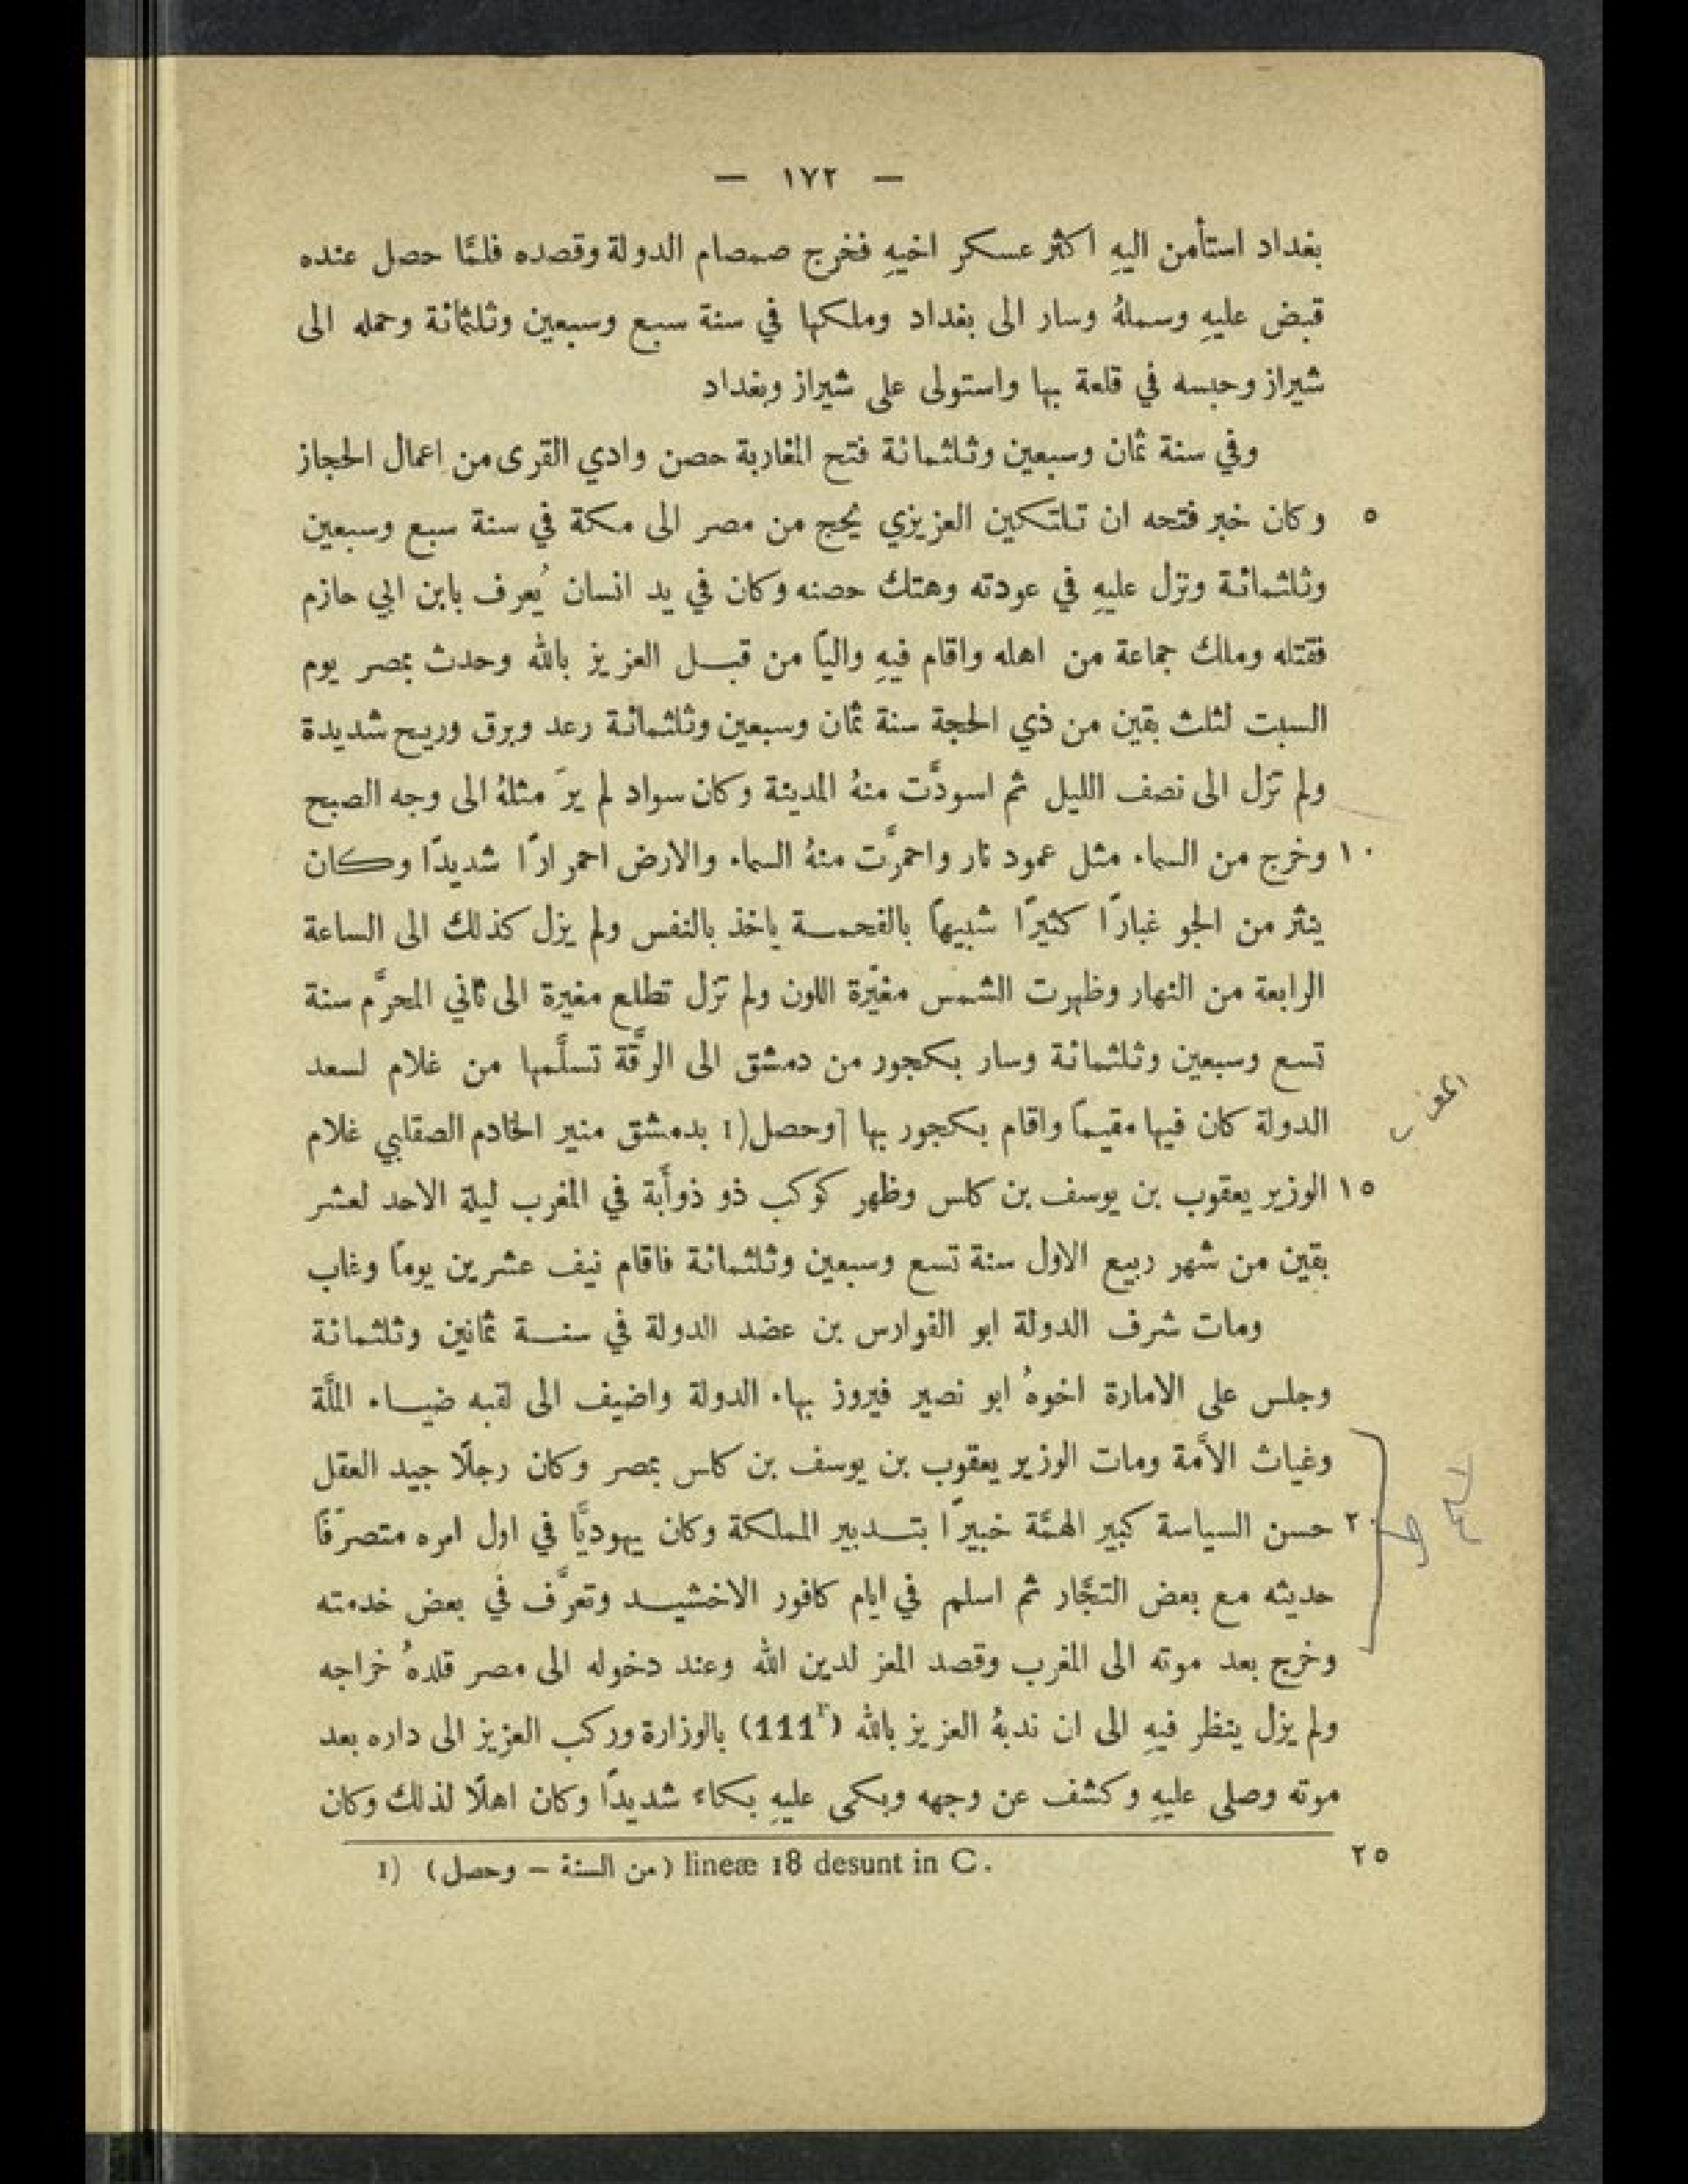 — ١٧٢ —
بغداد استأمن اليهِ اكثر عسكر اخيهِ فخرج صمصام الدولة وقصده فلمَّا حصل عنده
قبض عليهِ وسملهُ وسار الى بغداد وملكها في سنة سبع وسبعين وثلثمائة وحمله الى
شيراز وحبسه في قلعة بها واستولى على شيراز وبغداد
وفي سنة ثمان وسبعين وثلثمائة فتح المغاربة حصن وادي القرى من اعمال الحجاز
٥ وكان خبر فتحه ان تلتكين العزيزي يحج من مصر الى مكة في سنة سبع وسبعين
وثلثمائة ونزل عليهِ في عودته وهتك حصنه وكان في يد انسان يُعرف بابن ابي حازم
فقتله وملك جماعة من اهله واقام فيهِ واليًا من قبل العزيز بالله وحدث بمصر يوم
السبت لثلث بقين من ذي الحجة سنة ثمان وسبعين وثلثمائة رعد وبرق وريح شديدة
ولم تزل الى نصف الليل ثم اسودَّت منهُ المدينة وكان سواد لم يرَ مثلهُ الى وجه الصبح
١٠ وخرج من السماء مثل عمود نار واحمرَّت منهُ السماء والارض احمرارًا شديدًا وكان
ينثر من الجو غبارًا كثيرًا شبيهًا بالفحمة ياخذ بالنفس ولم يزل كذلك الى الساعة
الرابعة من النهار وظهرت الشمس مغيّرة اللون ولم تزل تطلع مغيرة الى ثاني المحرَّم سنة
تسع وسبعين وثلثمائة وسار بكجور من دمشق الى الرقَّة تسلَّمها من غلام لسعد
الدولة كان فيها مقيمًا واقام بكجور بها [وحصل(1 بدمشق منير الخادم الصقلبي غلام
١٥ الوزير يعقوب بن يوسف بن كلس وظهر كوكب ذو ذوأبة في المغرب ليلة الاحد لعشر
بقين من شهر ربيع الاول سنة تسع وسبعين وثلثمائة فاقام نيف عشرين يومًا وغاب
ومات شرف الدولة ابو الفوارس بن عضد الدولة في سنة ثمانين وثلثمائة
وجلس على الامارة اخوهُ ابو نصير فيروز بهاء الدولة واضيف الى لقبه ضياء الملَّة
وغياث الأمة ومات الوزير يعقوب بن يوسف بن كلس بمصر وكان رجلًا جيد العقل
٢٠ حسن السياسة كبير الهمَّة خبيرًا بتدبير المملكة وكان يهوديًّا في اول امره متصرّفًا
حديثه مع بعض التجَّار ثم اسلم في ايام كافور الاخشيد وتعرَّف في بعض خدمته
وخرج بعد موته الى المغرب وقصد المعز لدين الله وعند دخوله الى مصر قلدهُ خراجه
ولم يزل ينظر فيهِ الى ان ندبهُ العزيز بالله (111r) بالوزارة وركب العزيز الى داره بعد
موته وصلى عليهِ وكشف عن وجهه وبكى عليهِ بكاءً شديدًا وكان اهلًا لذلك وكان
٢٥
1) (من السنة – وحصل) lineæ 18 desunt in C.